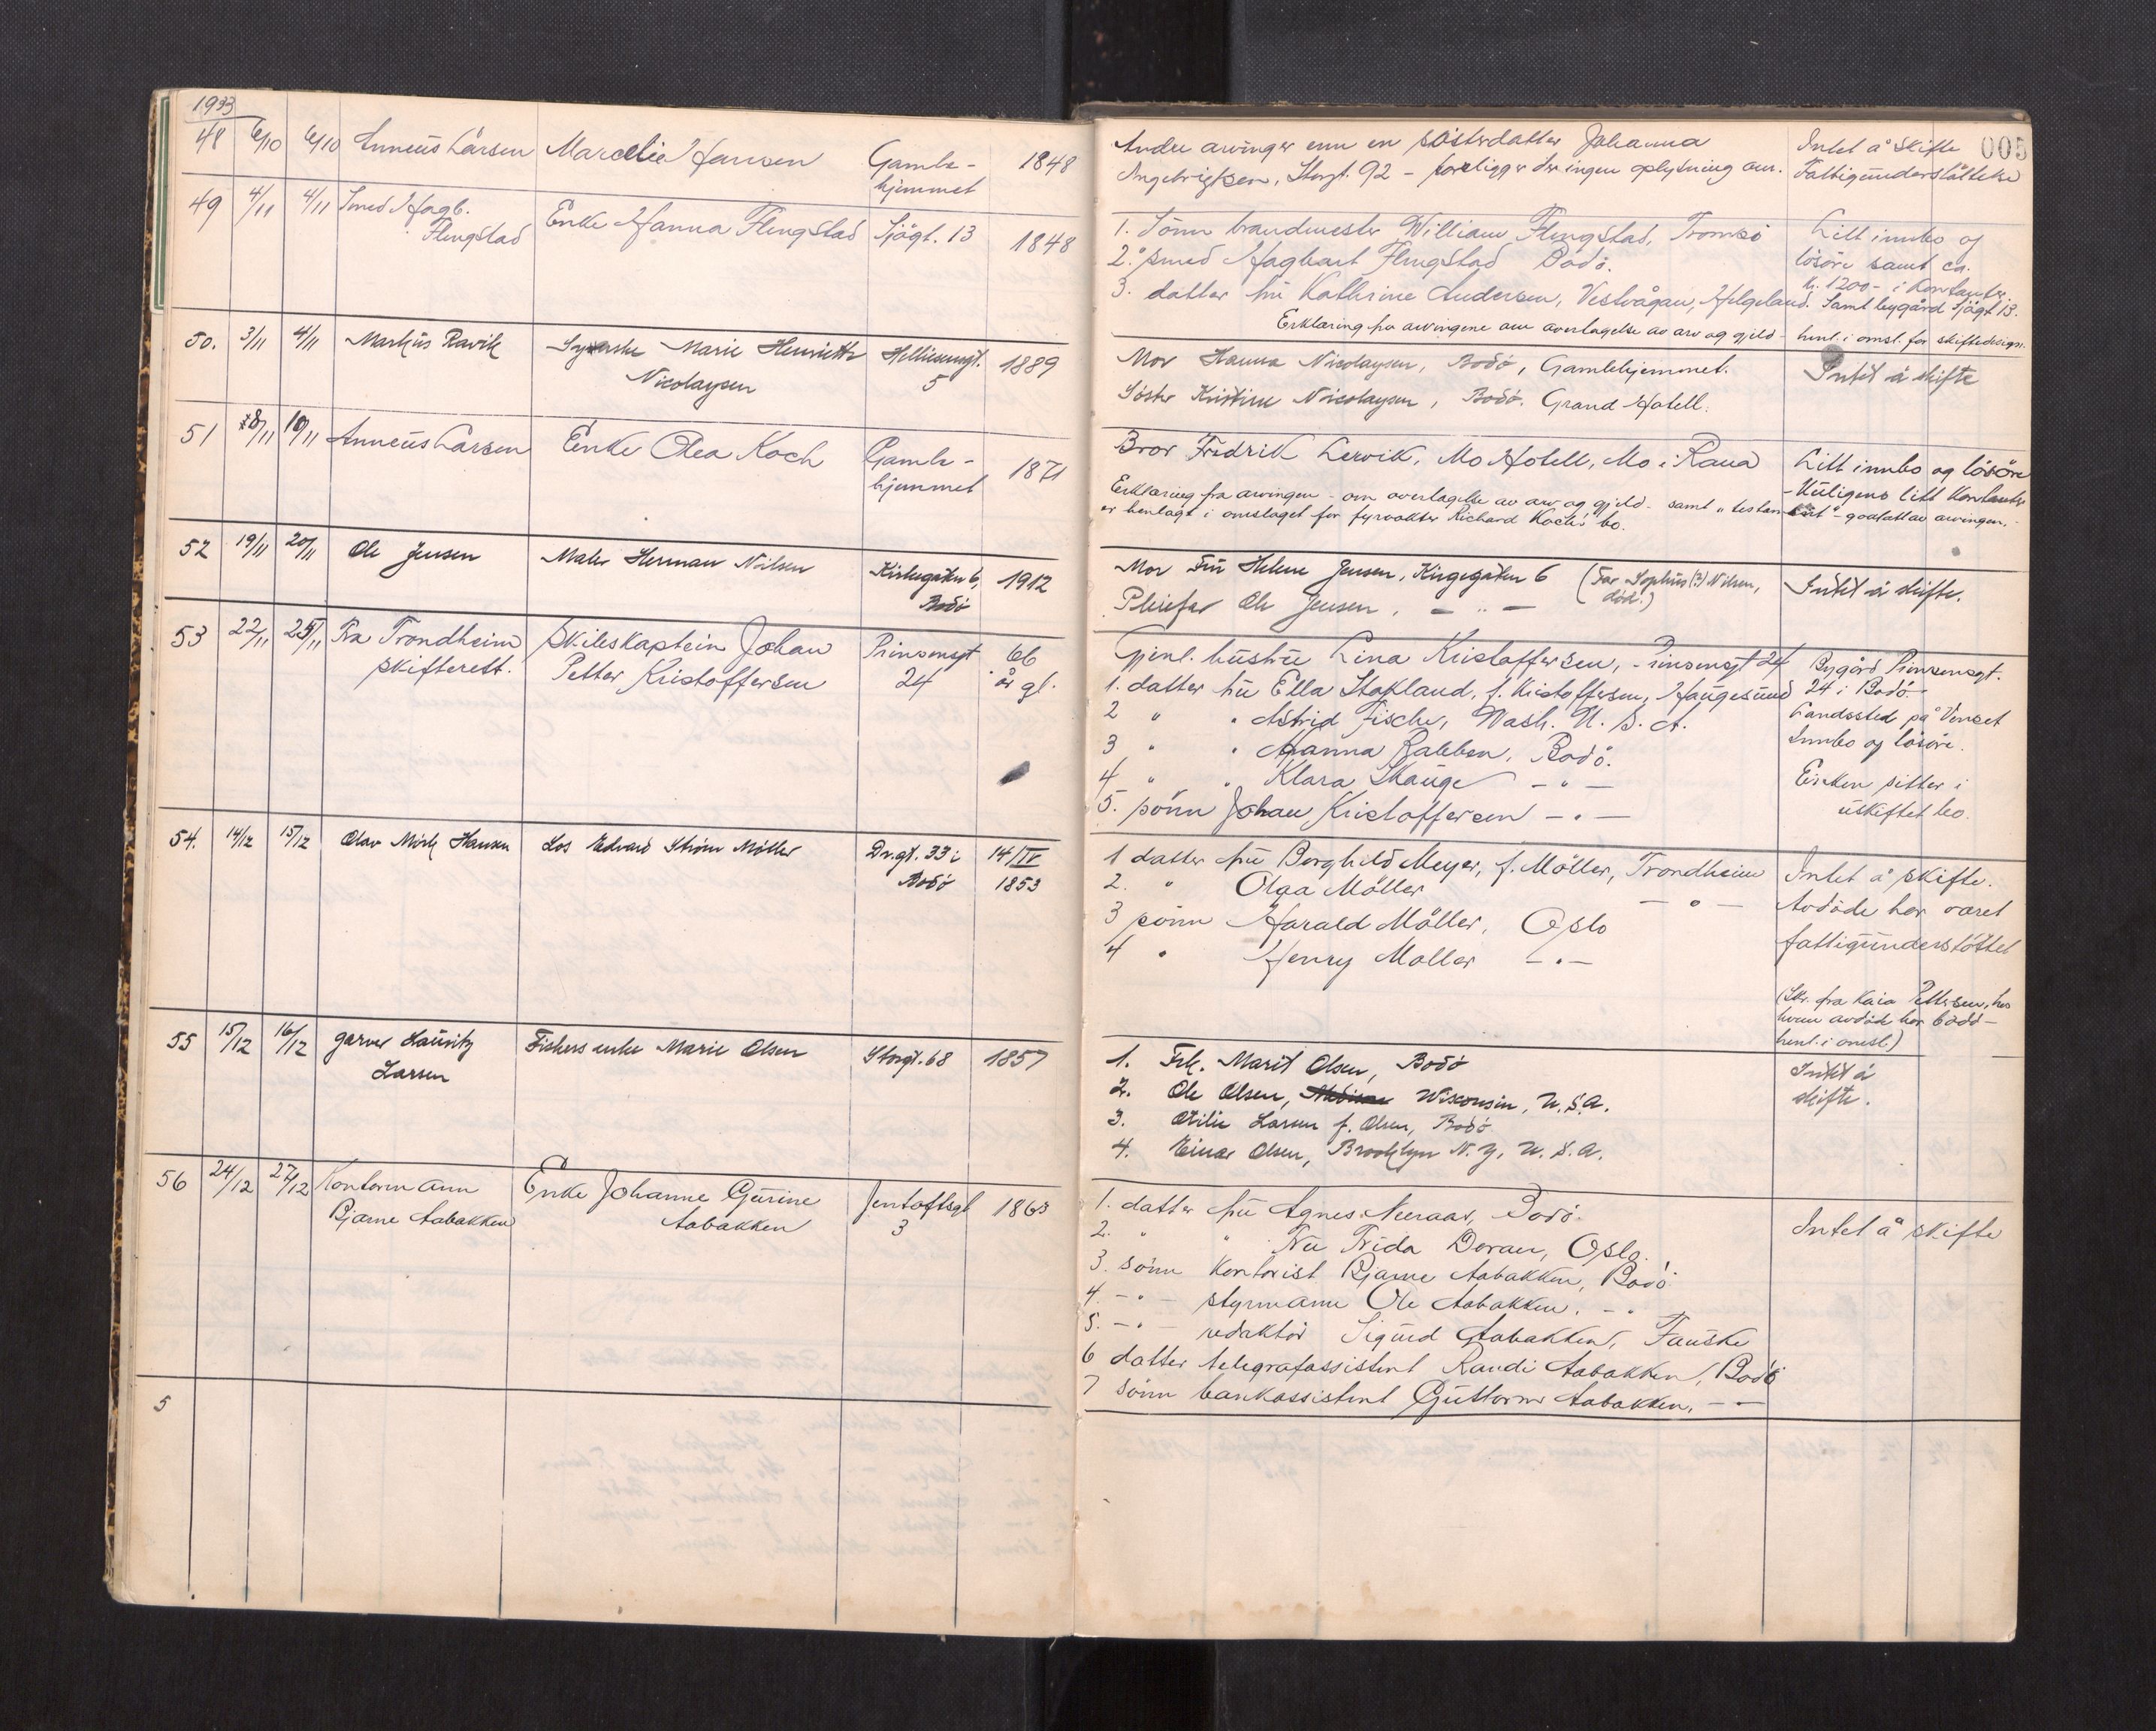 1933
48 6/10 6/10 Anneus Larsen Marcelie Hansen Gamle- 1848
hjemmet
Andre arvinger enn en søsterdatter Johanna
Angebrigtsen, Storgt. 92 - foreligger der ingen oplysning om.
Intet å skifte
Fattigunderstøttelse
005
49 4/11 4/11 Smed Hagb. Enke Hanna Flengstad Sjøgt. 13 1848
Flengstad
1. Sønn brandmester William Flengstad, Tromsø
2. " smed Hagbart Flengstad Bodø.
3. datter fru Kathrine Andersen, Vestvågan, Helgeland.
Erklæring fra arvingene om overtagelse av arv og gjeld - henl. i omsl. for skiftedesign.
Litt innbo og
løsøre samt ca.
kr. 1200- i kontanter
Samt bygård Sjøgt 13.
50. 3/11 4/11 Markus Ravik Syerske Marie Henriette Hellinsengt. 1889
Nicolaysen 5
Mor Hanna Nicolaysen, Bodø, Gamlehjemmet.
Søster Kristine Nicolaysen, Bodø. Grand Hotell.
Intet å skifte
51 8/11 10/11 Anneus Larsen Enke Olea Koch Gamle- 1871
hjemmet
Bror Fredrik Lervik, Mo Hotell, Mo i Rana
Erklæring fra arvingen - om overtagelse av arv og gjeld - samt "testament" - godtatt av arvingen. -
er henlagt i omslaget for fyrvokter Richard Koch's bo.
Litt innbo og løsøre
- Muligens litt kontanter
52 19/11 20/11 Ole Jensen Maler Herman Nilsen Kirkegaten 6, 1912
Bodø
Mor Fru Helene Jensen, Kirkegaten 6 (Far Sophus (?) Nilsen,
død.)
Pleiefar Ole Jensen, - " -
Intet å skifte.
53 22/11 25/11 Fra Trondheim Skibskaptein Johan Prinsensgt 66
skifterett. Petter Kristoffersen 24 år gl.
Gjenl. hustru Lina Kristoffersen, Prinsensgt 24
1. datter fru Ella Stakland, f. Kristoffersen, Haugesund
2 " " Astrid Fischer, Wash. U. S. A.
3 " " Hanna Rabben, Bodø.
4 " " Klara Skauge - " -
5. sønn Johan Kristoffersen - " -
Bygård Prinsensgt.
24 i Bodø.
Landssted på Venset
Innbo og løsøre.
Enken sitter i
uskiftet bo.
54. 14/12 15/12 Olav Mørk Hansen Los Edvard Strøm Møller Dr.gt. 33 i 14/IV
Bodø 1853
1 datter fru Borghild Meyer, f. Møller, Trondheim
2. " Olga Møller - " -
3 sønn Harald Møller, Oslo
4 " Henry Møller - " -
Intet å skifte.
Avdøde har været
fattigunderstøttet
(Skr. fra Kaia Pettersen, hos
hvem avdøde har bodd -
henl. i omsl.)
55 15/12 16/12 garver Lauritz Fiskers enke Marie Olsen Storgt. 68 1857
Larsen
1. Frk. Marit Olsen, Bodø
2. Ole Olsen, Wisconsin, U.S.A.
3. Otilie Larsen f. Olsen, Bodø
4. Einar Olsen, Brooklyn N.Y. U.S.A.
Intet å
skifte.
56 24/12 27/12 Kontormann Enke Johanne Gurine Jentoftsgt 1863
Bjarne Aabakken Aabakken 3
1. datter fru Agnes Neeraas, Bodø.
2. " " Frida Doran, Oslo.
3. sønn kontorist Bjarne Aabakken, Bodø
4. - " - styrmann Ole Aabakken, - "
5. - " - redaktør Sigurd Aabakken, Fauske
6 datter telegrafassistent Randi Aabakken, Bodø
7 sønn bankassistent Guttorm Aabakken, - " -
Intet å skifte
5